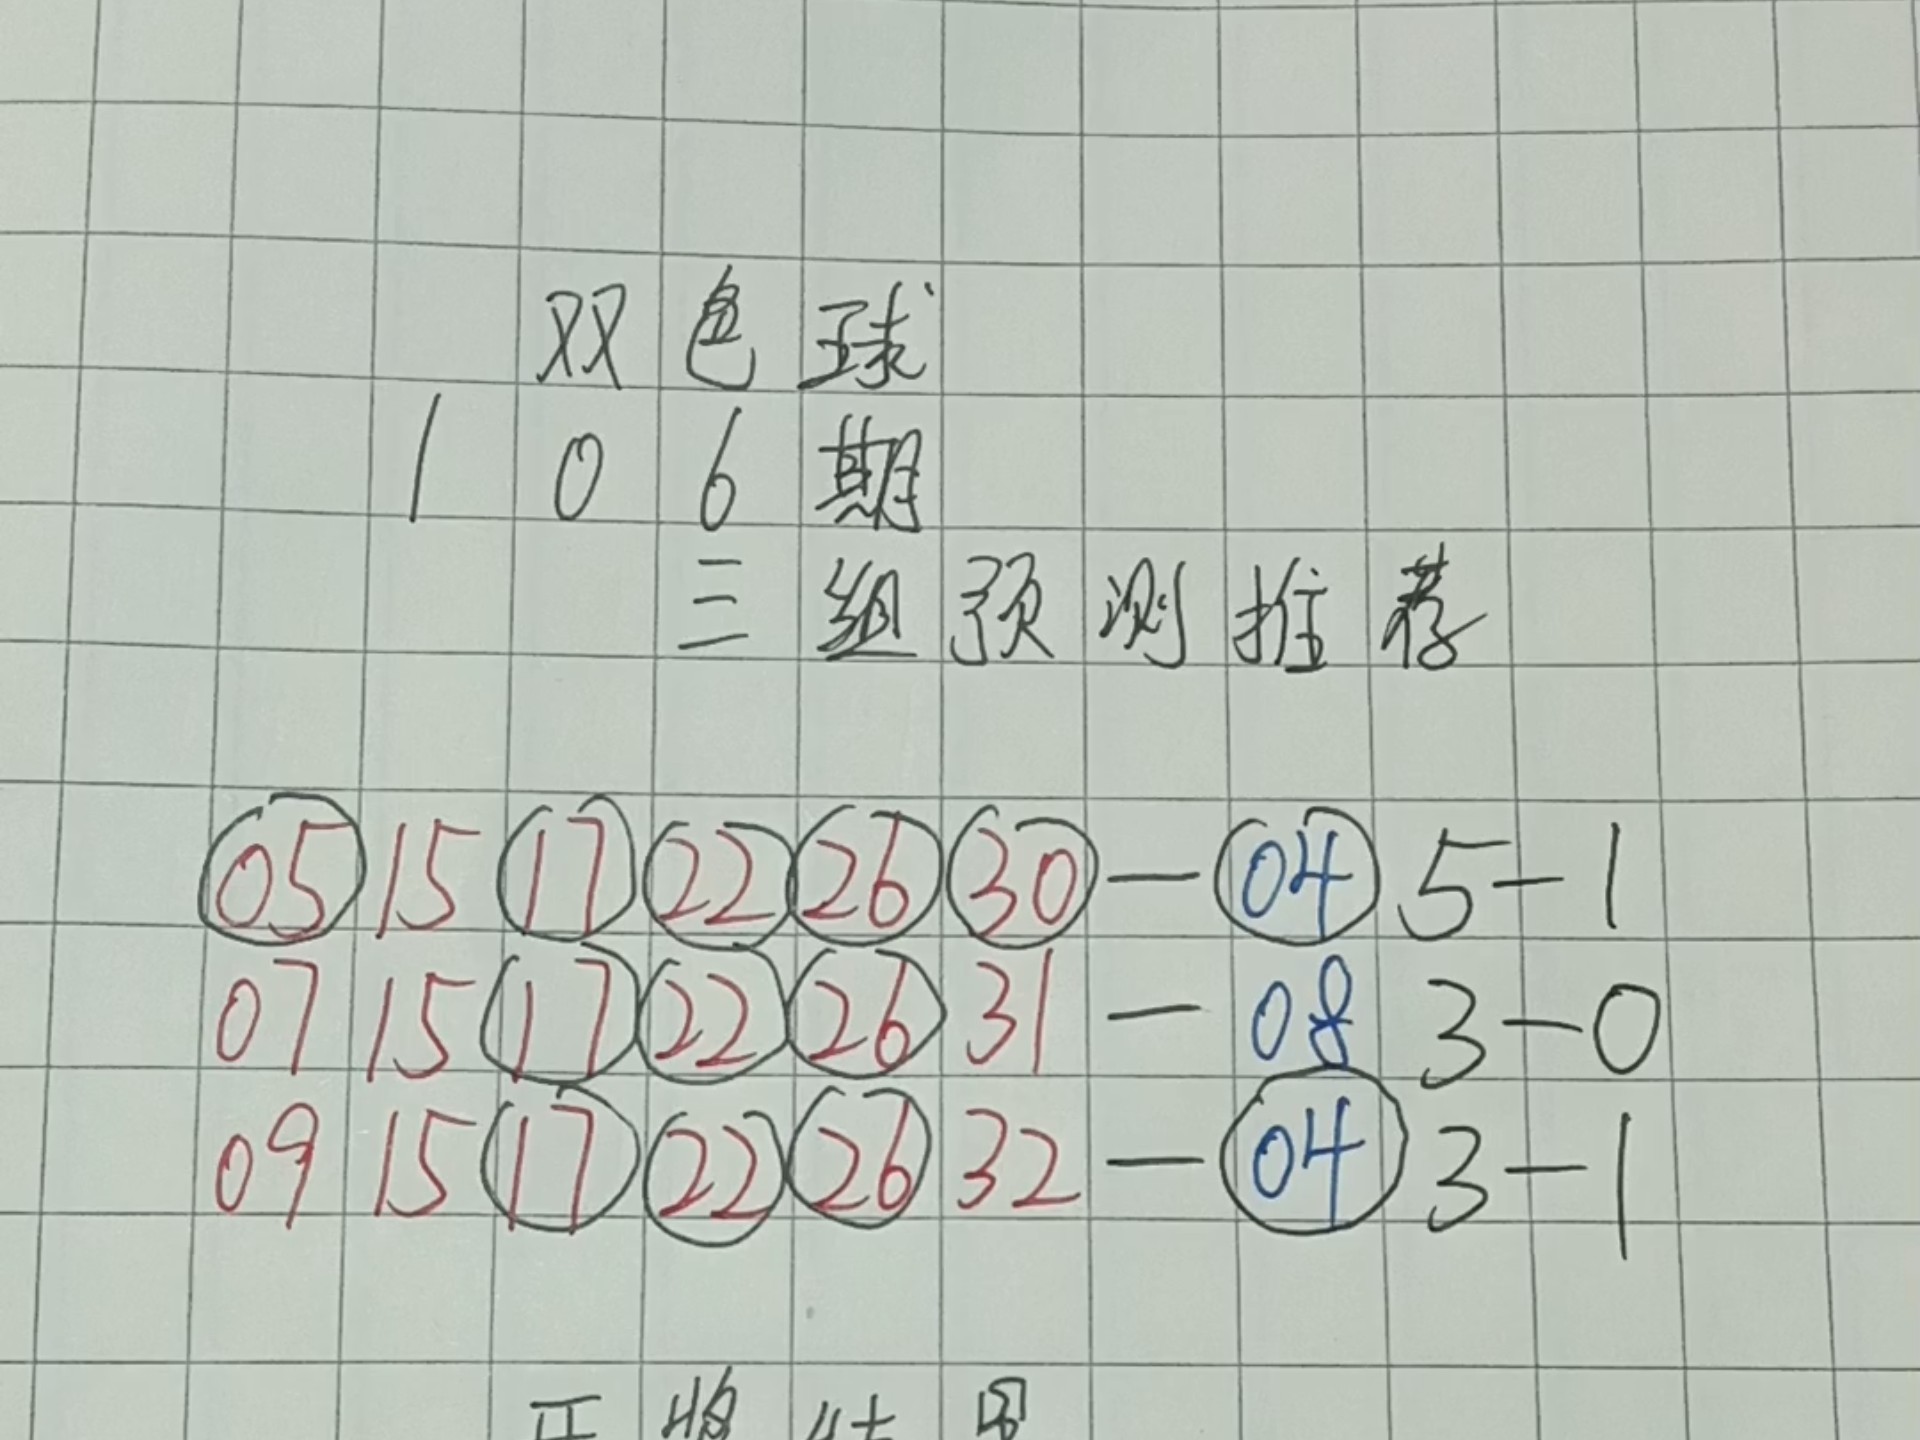 双色球
106期
三组预测推荐
05 15 17 22 26 30 — 04 5-1
07 15 17 22 26 31 — 08 3-0
09 15 17 22 26 32 — 04 3-1